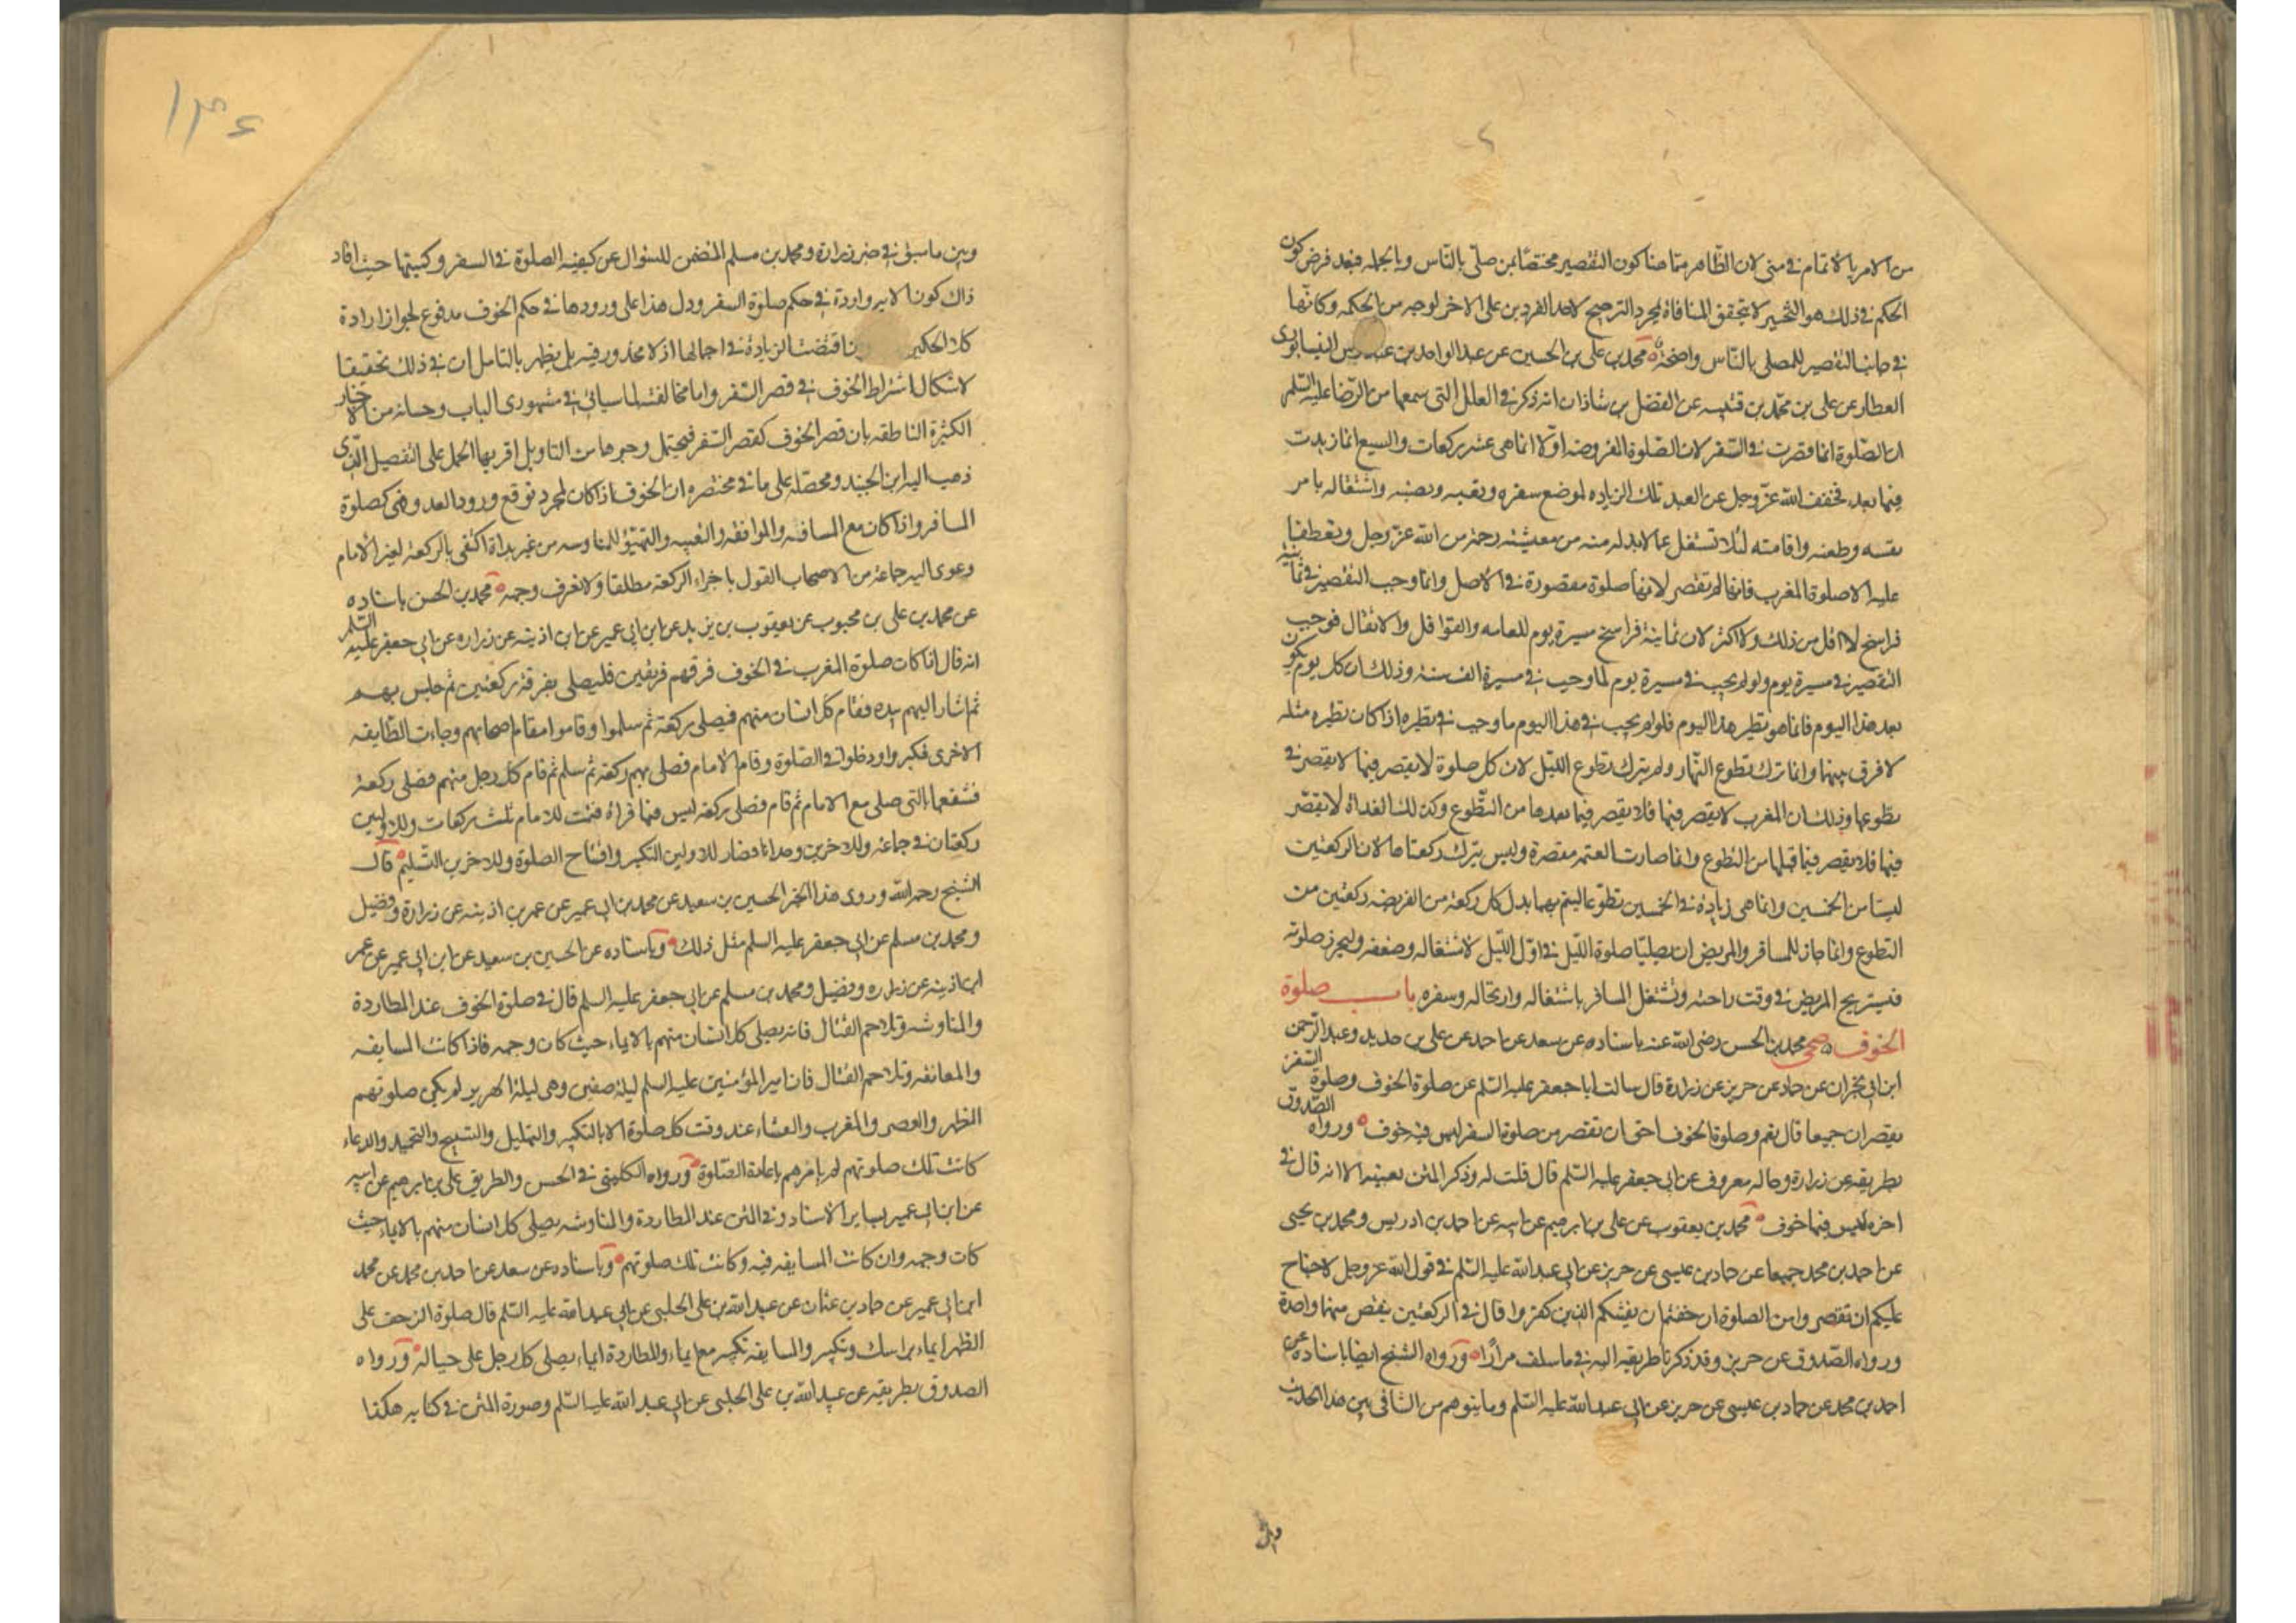 من الامر بالاتمام في منى لان الظاهر متا هنا كون التقصير مختصا بمن صلى بالناس وبالجمله فبعد فرض كون
الحكم في ذلك هو التخيير لا يتحقق المنافاة لمجرد الترجيح لاحد الفردين على الاخر لوجه من الحكمه وكانها
في جانب التقصير للمصلى بالناس واضحة محمد بن على بن الحسين عن عبد الواحد بن النيسابورى
العطار عن على بن محمد بن قتيبه عن الفضل بن شاذان انه ذكر في العلل التى سمعها من الرضا عليه السلم
ان الصلوة انما قصرت في السفر لان الصلوة المفروضه اولا انما هى عشر ركعات والسبع انما زيدت
فيما بعد فخفف الله عز وجل عن العبد تلك الزياده لموضع سفره وتعبه ونصبه واشتغاله بامر
نفسه وظعنه واقامته لئلا تشتغل عما لابد له منه من معيشته رحمة من الله عز وجل وتعطفا
عليه الا صلوة المغرب فانها لم تقصر لانها صلوة مقصورة في الاصل وانما وجب التقصير في ثمانية
فراسخ لا اقل من ذلك ولا اكثر لان ثمانية فراسخ مسيرة يوم للعامه والقوافل والاثقال فوجب
التقصير في مسيرة يوم ولو لم يجب في مسيرة يوم لما وجب في مسيرة الف سنة وذلك ان كل يوم يكون
بعد هذا اليوم فانما هو نظير هذا اليوم فلو لم يجب في هذا اليوم ما وجب في نظيره اذا كان نظيره مثله
لا فرق بينهما وانما ترك تطوع النهار ولم يترك تطوع الليل لان كل صلوة لا يقصر فيها لا يقصر في
تطوعها وذلك ان المغرب لا يقصر فيها فلا يقصر فيما بعدها من التطوع وكذلك الغداة لا يقصر
فيها فلا يقصر فيما قبلها من التطوع وانما صارت العتمه مقصرة وليس يترك ركعتاها لان الركعتين
ليستا من الخمسين وانما هى زيادة في الخمسين تطوعا ليتم بهما بدل كل ركعة من الفريضه ركعتين من
التطوع وانما جاز للمسافر والمريض ان يصليا صلوة الليل في اول الليل لاشتغاله وضعفه وليحرز صلوته
فيستريح المريض في وقت راحته وتشتغل المسافر باشتغاله وارتحاله وسفره باب صلوة
الخوف صحى محمد بن الحسن رضى الله عنه باسناده عن سعد عن احمد عن على بن حديد وعبد الرحمن
ابن ابى نجران عن حماد عن حريز عن زرارة قال سالت ابا جعفر عليه السلم عن صلوة الخوف وصلوة السفر
يقصران جميعا قال نعم وصلوة الخوف احق ان تقصر من صلوة السفر ليس فيه خوف ورواه الصدوق
بطريقه عن زرارة وحاله معروف عن ابى جعفر عليه السلم قال قلت له وذكر المتن بعينه الا انه قال في
اخره ليس فيها خوف محمد بن يعقوب عن على بن ابرهيم عن ابيه عن احمد بن ادريس ومحمد بن يحيى
عن احمد بن محمد جميعا عن حماد بن عيسى عن حريز عن ابى عبد الله عليه السلم في قول الله عز وجل لا جناح
عليكم ان تقصروا من الصلوة ان خفتم ان يفتنكم الذين كفروا قال في الركعتين ينقص منهما واحدة
ورواه الصدوق عن حريز وقد ذكرنا طريقه اليه في ما سلف مرارا ورواه الشيخ ايضا باسناده عن
احمد بن محمد عن حماد بن عيسى عن حريز عن ابى عبد الله عليه السلم وما يتوهم من التنافى بين هذا الحديث
١٣٤
وبين ما سبق في خبر زرارة ومحمد بن مسلم المتضمن للسئوال عن كيفيه الصلوة في السفر وكميتها حيث افاد
ذاك كون الايه واردة في حكم صلوة السفر ودل هذا على ورودها في حكم الخوف مدفوع لجواز ارادة
كلا الحكمين اقتضت الزيادة في اجمالها اذ لا محذور فيه بل يظهر بالتامل ان في ذلك تحقيقا
لاشكال اشتراط الخوف في قصر السفر واما مخالفته لما سياتى في مشهورى الباب وحسانه من الاخبار
الكثيرة الناطقه بان قصر الخوف كقصر السفر فيحتمل وجوها من التاويل اقربها الحمل على التفصيل الذى
ذهب اليه ابن الجنيد ومحصله على ما في مختصره ان الخوف اذا كان لمجرد توقع ورود العدو فهى كصلوة
المسافر واذا كان مع المسافه والموافقه والتعبيه والتهيؤ للمناوسه من غير بداة اكتفى بالركعة لغير الامام
وعوى اليه جماعة من الاصحاب القول باجزاء الركعة مطلقا ولا نعرف وجهه محمد بن الحسن باسناده
عن محمد بن على بن محبوب عن يعقوب بن يزيد عن ابن ابى عمير عن ابن اذينه عن زراره عن ابى جعفر عليه السلم
انه قال اذا كات صلوة المغرب في الخوف فرقهم فرقتين فليصلى بفرقة ركعتين ثم جلس بهم
ثم اشار اليهم بيده فقام كل انسان منهم فيصلى ركعة ثم سلموا وقاموا مقام اصحابهم وجاءت الطايفه
الاخرى فكبروا ودخلوا في الصلوة وقام الامام فصلى بهم ركعة ثم سلم ثم قام كل رجل منهم فصلى ركعة
فشفعها بالتى صلى مع الامام ثم قام فصلى ركعة ليس فيها قراة فتمت للامام ثلث ركعات وللاولين
ركعتان في جماعة وللاخرين وحدانا فصار للاولين التكبير وافتتاح الصلوة وللاخرين التسليم قال
الشيخ رحمه الله وروى هذا الخبر الحسين بن سعيد عن محمد بن ابى عمير عن عمر بن اذينه عن زرارة وفضيل
ومحمد بن مسلم عن ابى جعفر عليه السلم مثل ذلك وباسناده عن الحسين بن سعيد عن ابن ابى عمير عن عمر
ابن اذينه عن زراره وفضيل ومحمد بن مسلم عن ابى جعفر عليه السلم قال في صلوة الخوف عند المطاردة
والمناوشه وتلاحم القتال فانه يصلى كل انسان منهم بالايماء حيث كان وجهه فاذا كانت المسايفه
والمعانقه وتلاحم القتال فان امير المؤمنين عليه السلم ليلة صفين وهى ليلة الهرير لم يكن صلوتهم
الظهر والعصر والمغرب والعشاء عند وقت كل صلوة الا بالتكبير والتهليل والتسبيح والتحميد والدعاء
كانت تلك صلوتهم لم يامرهم باعادة الصلوة ورواه الكلينى في الحسن والطريق على بن ابرهيم عن ابيه
عن ابن ابى عمير بساير الاسناد وفي المتن عند المطاردة والمناوشه يصلى كل انسان منهم بالايماء حيث
كات وجهه وان كانت المسايفه فيه وكانت تلك صلوتهم وباسناده عن سعد عن احمد بن محمد عن محمد
ابن ابى عمير عن حماد بن عثمان عن عبيد الله بن على الحلبى عن ابى عبد الله عليه السلم قال صلوة الزحف على
الظهر ايماء براسك وتكبير والمسايفه تكبير مع ايماء والمطاردة ايماء يصلى كل رجل على حياله ورواه
الصدوق بطريقه عن عبيد الله بن على الحلبى عن ابى عبد الله عليه السلم وصورة المتن في كتابه هكذا